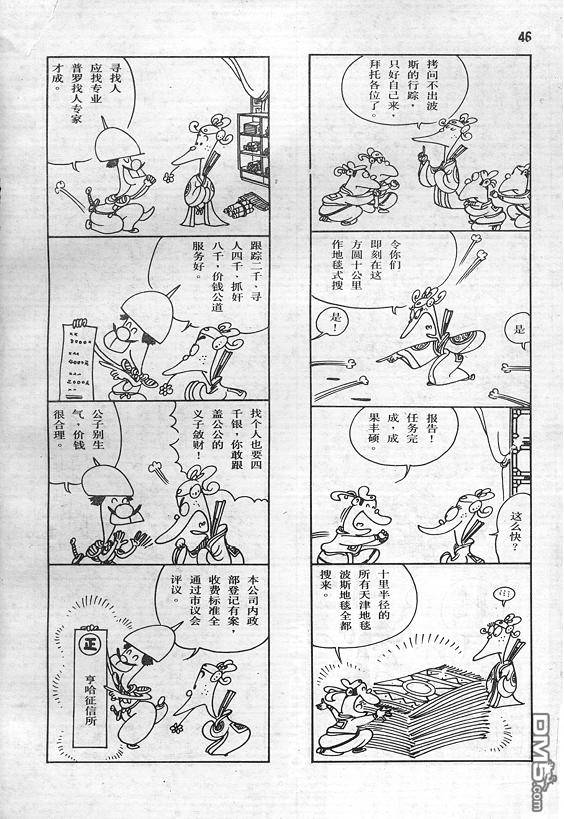 46
拷问不出波
斯的行踪，
只好自己来，
拜托各位了。
令你们
即刻在这
方圆十公里
作地毯式搜
是
是！
报告！
任务完
成，成
果丰硕。
这么快？
十里半径的
所有天津地毯
波斯地毯全都
搜来。
寻找人
应找专业
普罗找人专家
才成。
跟踪二千、寻
人四千、抓奸
八千，价钱公道
服务好。
找个人也要四
千银，你敢跟
盖公公的
义子敛财！
公子别生
气，价钱
很合理。
本公司内政
部登记有案，
收费标准全
通过市议会
评议。
正
亨哈征信所
DM5.com